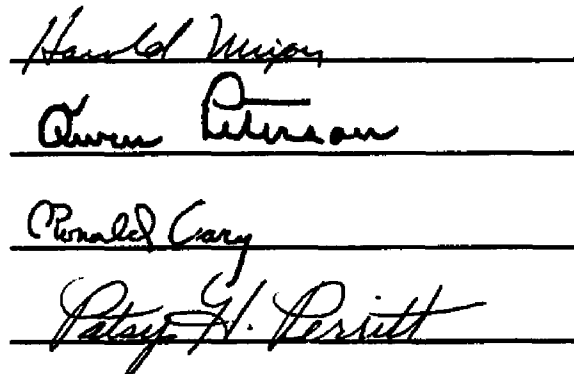 Harold Mixon
Owen Peterson
Ronald Cary
Patsy H. Perritt